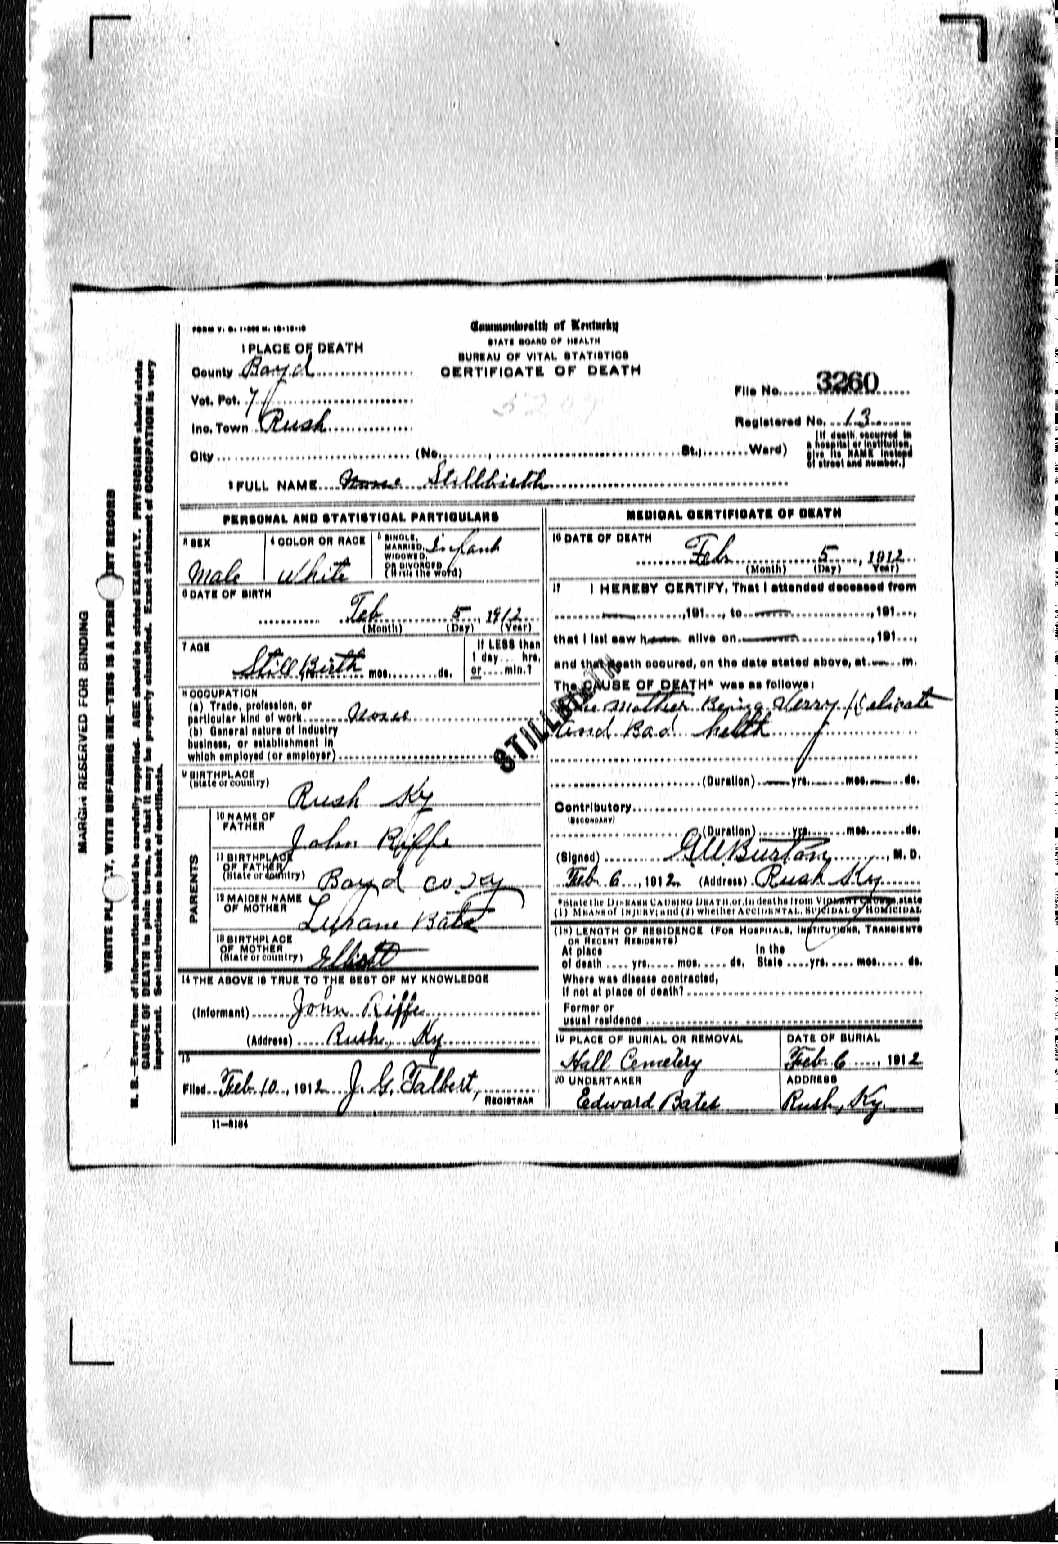 FORM V. S. 1
Commonwealth of Kentucky
STATE BOARD OF HEALTH
BUREAU OF VITAL STATISTICS
CERTIFICATE OF DEATH
1 PLACE OF DEATH
County Boyd
Vot. Pct. 7
Inc. Town Rush
City (No. St.; Ward)
File No. 3260
Registered No. 13
[If death occurred in
a hospital or institution,
give its NAME instead
of street and number.]
2 FULL NAME None Stillbirth
PERSONAL AND STATISTICAL PARTICULARS
3 SEX
Male
4 COLOR OR RACE
White
5 SINGLE,
MARRIED,
WIDOWED,
OR DIVORCED
(Write the word)
Infant
6 DATE OF BIRTH
Feb 5, 1912
(Month) (Day) (Year)
7 AGE
Still Birth
yrs. mos. ds.
If LESS than
1 day.... hrs.
or.....min.?
8 OCCUPATION
(a) Trade, profession, or
particular kind of work None
(b) General nature of industry
business, or establishment in
which employed (or employer)
9 BIRTHPLACE
(State or country)
Rush Ky
PARENTS
10 NAME OF
FATHER
John Riffe
11 BIRTHPLACE
OF FATHER
(State or country)
Boyd Co. Ky
12 MAIDEN NAME
OF MOTHER
Bates
13 BIRTHPLACE
OF MOTHER
(State or country)
Elliott
14 THE ABOVE IS TRUE TO THE BEST OF MY KNOWLEDGE
(Informant) John Riffe
(Address) Rush, Ky
15
Filed Feb. 10, 1912 J. G. Talbert,
REGISTRAR
11—8184
MEDICAL CERTIFICATE OF DEATH
16 DATE OF DEATH
Feb 5, 1912
(Month) (Day) (Year)
17 I HEREBY CERTIFY, That I attended deceased from
, 191..., to , 191...,
that I last saw h alive on , 191...,
and that death occured, on the date stated above, at m.
The CAUSE OF DEATH* was as follows:
STILLBIRTH
The mother Being Verry Delicate
and Bad helth
(Duration) yrs. mos. ds.
Contributory
(SECONDARY)
(Duration) yrs. mos. ds.
(Signed) G W Burton, M. D.
Feb. 6, 1912 (Address) Rush Ky
*State the DISEASE CAUSING DEATH, or, in deaths from VIOLENT CAUSES, state
(1) MEANS of INJURY; and (2) whether ACCIDENTAL, SUICIDAL or HOMICIDAL
(18) LENGTH OF RESIDENCE (FOR HOSPITALS, INSTITUTIONS, TRANSIENTS
OR RECENT RESIDENTS)
At place In the
of death yrs. mos. ds. State yrs. mos. ds.
Where was disease contracted,
if not at place of death?
Former or
usual residence
19 PLACE OF BURIAL OR REMOVAL
Hall Cemetery
DATE OF BURIAL
Feb. 6, 1912
20 UNDERTAKER
Edward Bates
ADDRESS
Rush, Ky.
MARGIN RESERVED FOR BINDING
WRITE PLAINLY, WITH UNFADING INK—THIS IS A PERMANENT RECORD
N. B.—Every item of information should be carefully supplied. AGE should be stated EXACTLY. PHYSICIANS should state
CAUSE OF DEATH in plain terms, so that it may be properly classified. Exact statement of OCCUPATION is very
important. See instructions on back of certificate.